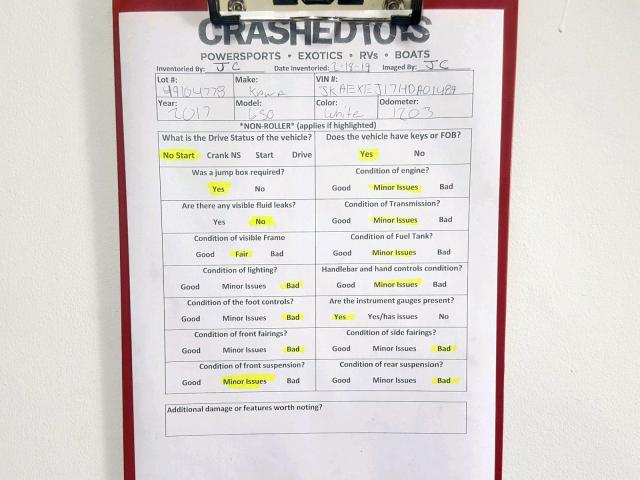 CRASHEDTOYS
POWERSPORTS • EXOTICS • RVs • BOATS
Inventoried By: JC Date Inventoried: 1-18-19 Imaged By: JC
Lot #: Make: VIN #:
49104778 KAWA JKAEXEJ17HDA01489
Year: Model: Color: Odometer:
2017 650 White 1203
*NON-ROLLER* (applies if highlighted)
What is the Drive Status of the vehicle? Does the vehicle have keys or FOB?
No Start Crank NS Start Drive Yes No
Was a jump box required? Condition of engine?
Yes No Good Minor Issues Bad
Are there any visible fluid leaks? Condition of Transmission?
Yes No Good Minor Issues Bad
Condition of visible Frame Condition of Fuel Tank?
Good Fair Bad Good Minor Issues Bad
Condition of lighting? Handlebar and hand controls condition?
Good Minor Issues Bad Good Minor Issues Bad
Condition of the foot controls? Are the instrument gauges present?
Good Minor Issues Bad Yes Yes/has issues No
Condition of front fairings? Condition of side fairings?
Good Minor Issues Bad Good Minor Issues Bad
Condition of front suspension? Condition of rear suspension?
Good Minor Issues Bad Good Minor Issues Bad
Additional damage or features worth noting?